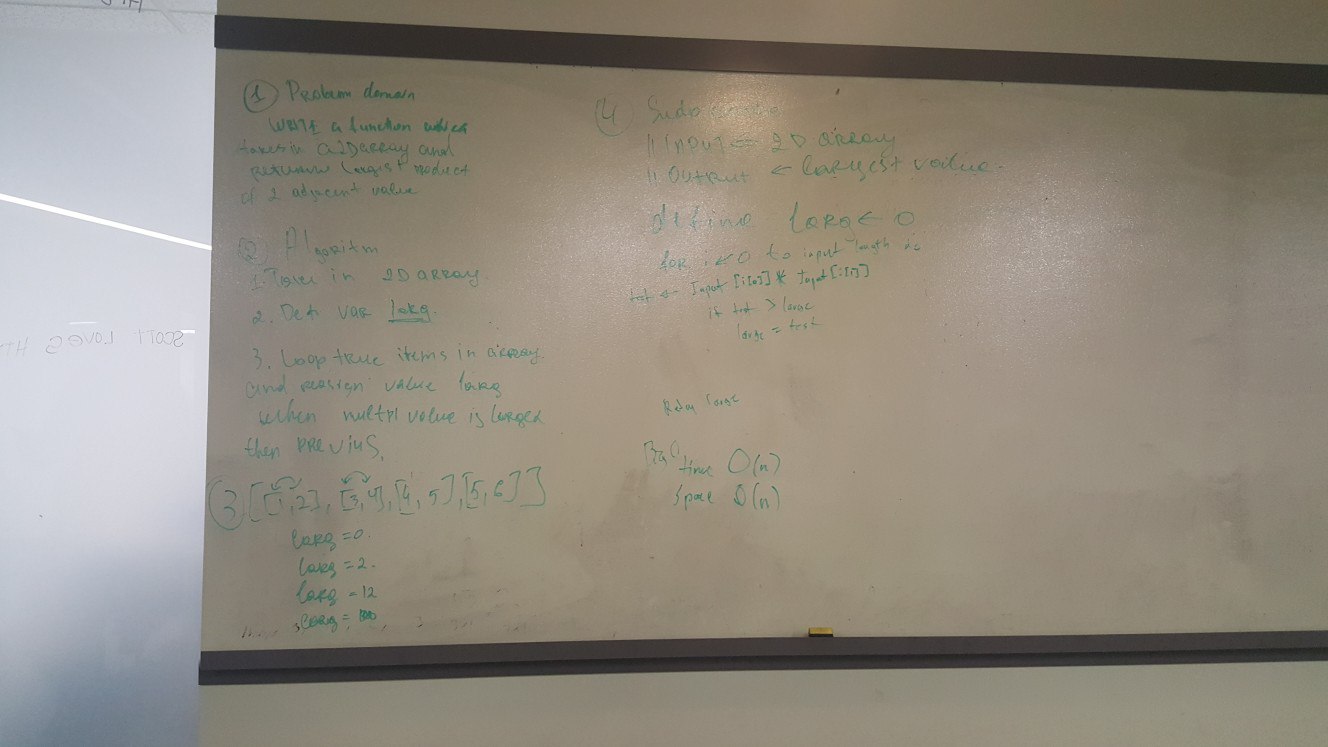 ① Problem domain
Write a function which
takes in a 2D array and
return largest product
of 2 adjacent value
② Algoritm
1. Take in 2D array
2. Def var larg.
3. Loop true items in array
and reasign value larg
when multpl value is larger
then previus.
③ [[1,2], [3,4],[4,5],[5,6]]
larg = 0.
larg = 2.
larg = 12
larg =
④ Sudo
// Input ← 2D array
// Output ← largest value.
define larg ← 0
for i ← 0 to input length do
tst ← Input [i[0]] * Input[i[1]]
if tst > large
large = test
Retun large
Big O
time O(n)
Space O(n)
SCOTT LOVES HT